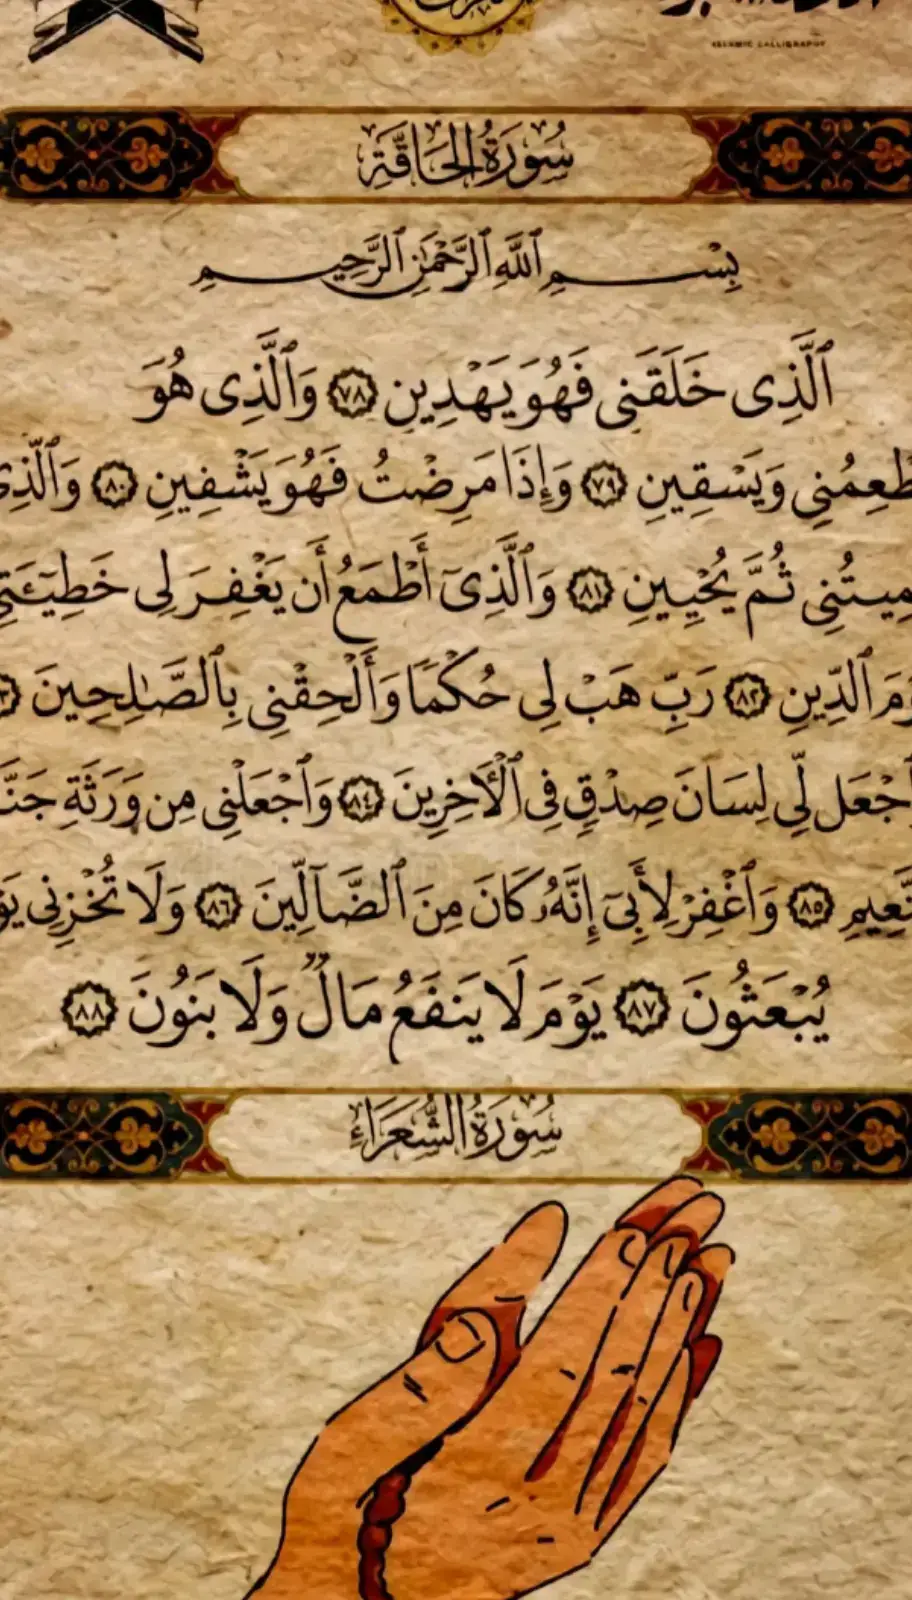 ISLAMIC CALLIGRAPHY
سُورَةُ الحَاقَّةِ
بِسْمِ ٱللَّهِ ٱلرَّحْمَٰنِ ٱلرَّحِيمِ
ٱلَّذِى خَلَقَنِى فَهُوَ يَهْدِينِ ٧٨ وَٱلَّذِى هُوَ
طْعِمُنِى وَيَسْقِينِ ٧٩ وَإِذَا مَرِضْتُ فَهُوَ يَشْفِينِ ٨٠ وَٱلَّذِى
مِيتُنِى ثُمَّ يُحْيِينِ ٨١ وَٱلَّذِىٓ أَطْمَعُ أَن يَغْفِرَ لِى خَطِيٓـَٔتِى
وْمَ ٱلدِّينِ ٨٢ رَبِّ هَبْ لِى حُكْمًا وَأَلْحِقْنِى بِٱلصَّـٰلِحِينَ
ٱجْعَل لِّى لِسَانَ صِدْقٍ فِى ٱلْـَٔاخِرِينَ ٨٤ وَٱجْعَلْنِى مِن وَرَثَةِ جَنَّ
نَّعِيمِ ٨٥ وَٱغْفِرْ لِأَبِىٓ إِنَّهُۥ كَانَ مِنَ ٱلضَّآلِّينَ ٨٦ وَلَا تُخْزِنِى يَوْ
يُبْعَثُونَ ٨٧ يَوْمَ لَا يَنفَعُ مَالٌ وَلَا بَنُونَ ٨٨
سُورَةُ الشُّعَرَاءِ